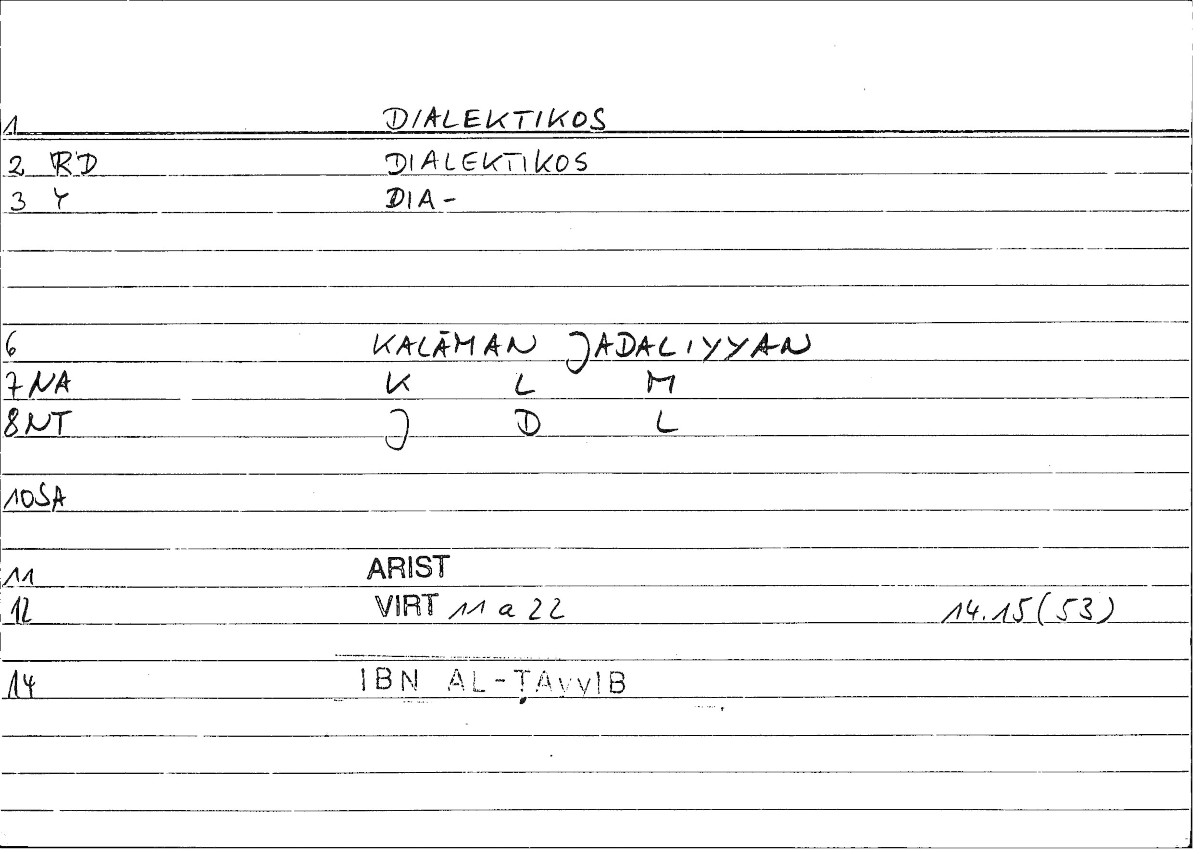 1 DIALEKTIKOS
2 RD DIALEKTIKOS
3 Y DIA-
6 KALĀMAN JADALIYYAN
7 NA K L M
8 NT J D L
10 SA
11 ARIST
12 VIRT 11 a 22 14.15(53)
14 IBN AL-ṬAYYIB